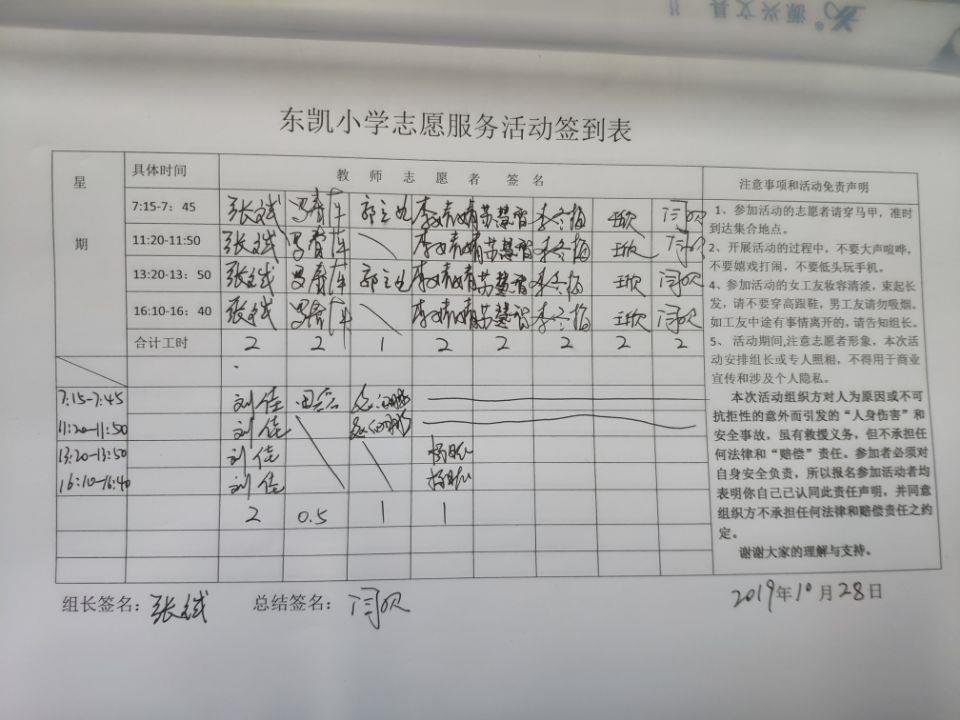 源兴文具
东凯小学志愿服务活动签到表
星期 具体时间 教师志愿者签名 注意事项和活动免责声明
7:15-7：45 张斌 李冬梅 王欣 闫贝
11:20-11:50 张斌 李冬梅 王欣 闫贝
13:20-13：50 张斌 李冬梅 王欣 闫贝
16:10-16：40 张斌 李冬梅 王欣 闫贝
合计工时 2 2 1 2 2 2 2 2
7:15-7:45 刘佳
11:20-11:50 刘佳
13:20-13:50 刘佳
16:10-16:40 刘佳
2 0.5 1 1
1、参加活动的志愿者请穿马甲，准时
到达集合地点。
2、开展活动的过程中，不要大声喧哗，
不要嬉戏打闹，不要低头玩手机。
4、参加活动的女工友妆容清淡，束起长
发，请不要穿高跟鞋，男工友请勿吸烟。
如工友中途有事情离开的，请告知组长。
5、 活动期间,注意志愿者形象，本次活
动安排组长或专人照相，不得用于商业
宣传和涉及个人隐私。
本次活动组织方对人为原因或不可
抗拒性的意外而引发的“人身伤害”和
安全事故，虽有救援义务，但不承担任
何法律和“赔偿”责任。参加者必须对
自身安全负责，所以报名参加活动者均
表明你自己已认同此责任声明，并同意
组织方不承担任何法律和赔偿责任之约
定。
谢谢大家的理解与支持。
组长签名：张斌 总结签名：闫贝 2019年10月28日